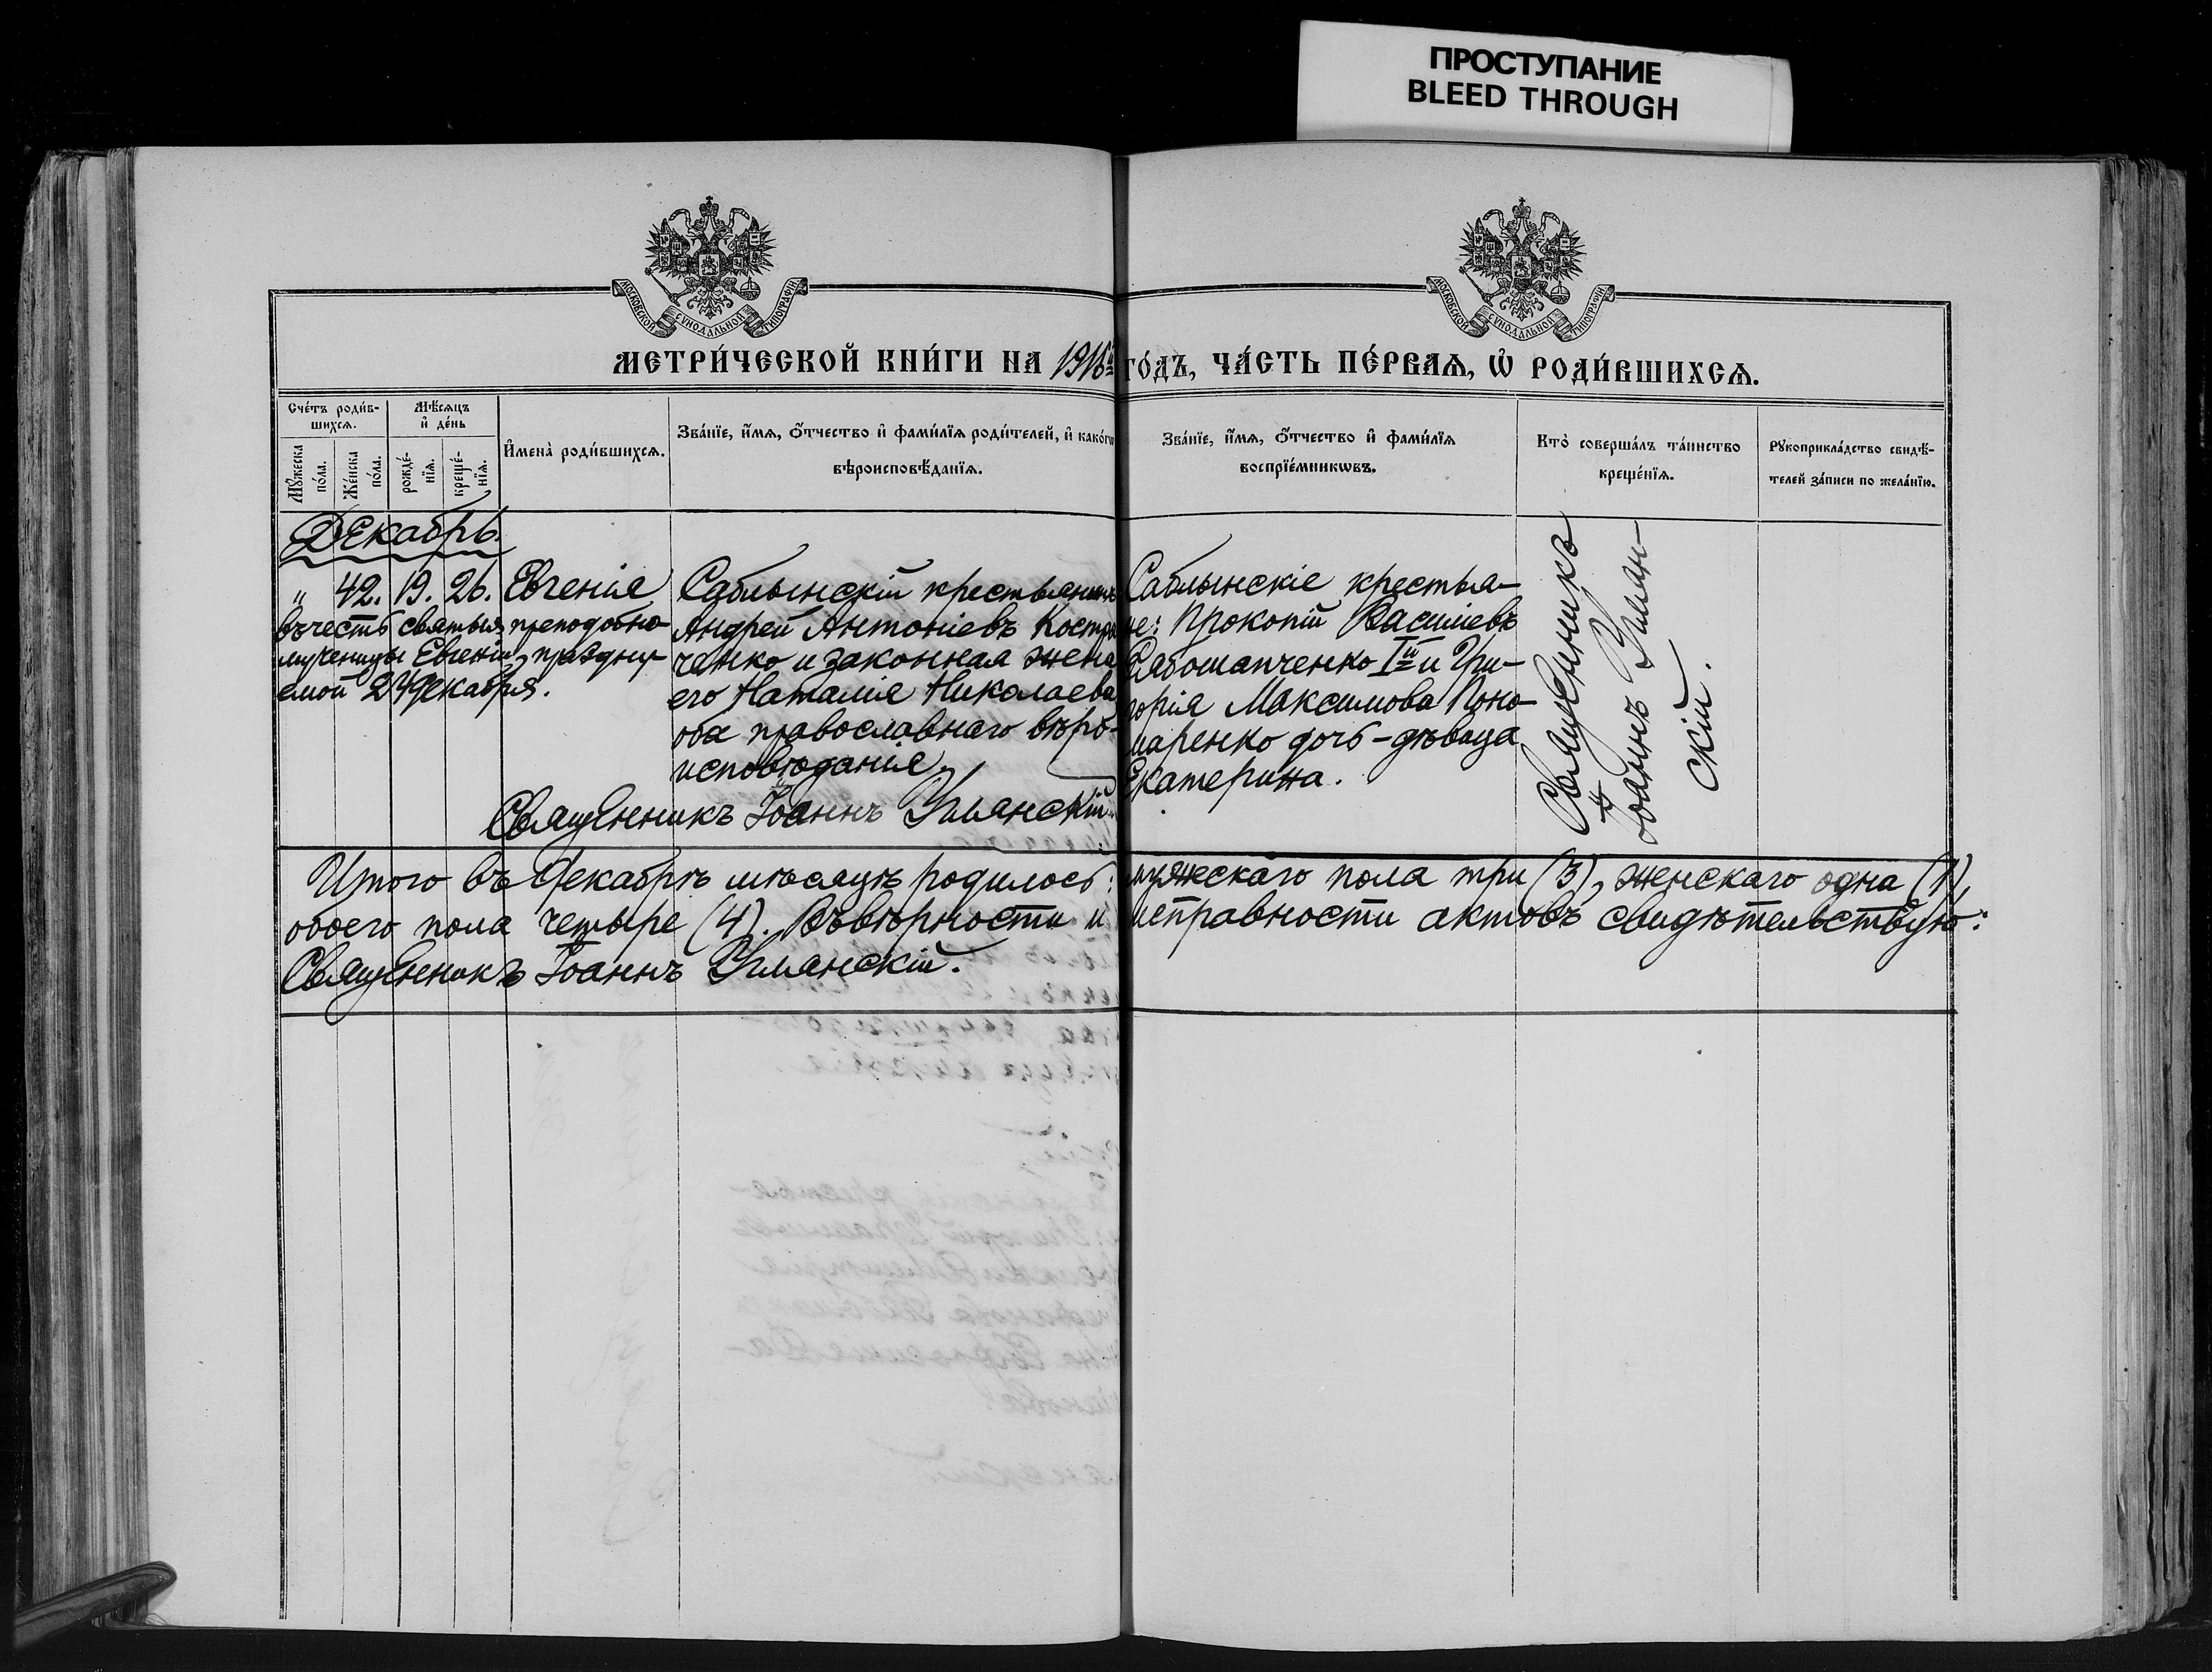 ПРОСТУПАНИЕ
BLEED THROUGH
МОСКОВСКОЙ СѴНОДАЛЬНОЙ ТИПОГРАФІИ
МОСКОВСКОЙ СѴНОДАЛЬНОЙ ТИПОГРАФІИ
МЕТРИ́ЧЕСКОЙ КНИ́ГИ НА 1916й ГО́ДЪ, ЧА́СТЬ ПЕ́РВАѦ, Ѡ҆ РОДИ́ВШИХСѦ.
Сче́тъ роди́в-
шихсѧ.
Мꙋ́жеска
по́ла.
Же́нска
по́ла.
Мѣ́сѧцъ
и҆ де́нь
рожде́-
нїѧ.
креще́-
нїѧ.
И҆мена̀ роди́вшихсѧ.
Зва́нїе, и҆́мѧ, ѻ҆́тчество и҆ фами́лїѧ роди́телей, и҆ како́гѡ
вѣроисповѣ́данїѧ.
Зва́нїе, и҆́мѧ, ѻ҆́тчество и҆ фами́лїѧ
воспрїе́мникѡвъ.
Кто̀ соверша́лъ та́инство
креще́нїѧ.
Рꙋкоприкла́дство свидѣ́-
телей за́писи по жела́нїю.
Декабрь.
" 42. 19. 26. Евгенія
въ честь святыя преподобно-
мученицы Евгеніи, праздну-
емой 24 декабря.
Саблынскій крестьянинъ
Андрей Антоніевъ Костри
ченко и законная жена
его Наталія Николаева
оба православнаго вѣро-
исповѣданія.
Священникъ Іоаннъ Уманскій.
Саблынскіе крестья-
не: Прокопій Василіевъ
Рябошапченко Iй и Гри-
горія Максимова Поно-
маренко дочь-дѣвица
Екатерина.
Священникъ
Іоаннъ Уман-
скій.
Итого въ Декабрѣ мѣсяцѣ родилось: мужескаго пола три (3), женскаго одна (1),
обоего пола четыре (4). Въ вѣрности и исправности актовъ свидѣтельствую:
Священникъ Іоаннъ Уманскій.